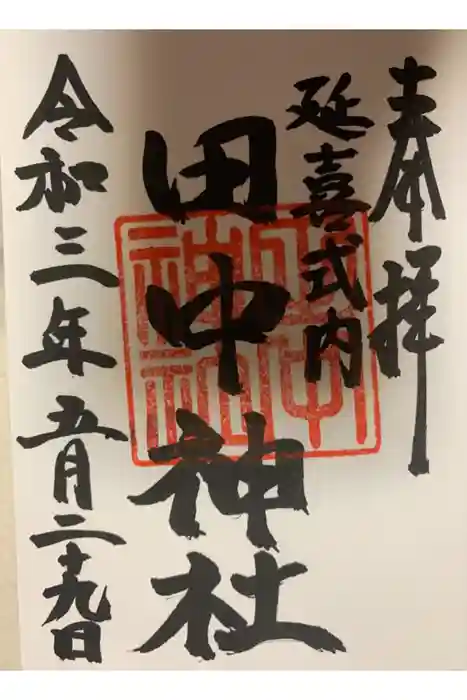 奉拝
延喜式内
田中神社
田中
神社
令和三年五月二十九日